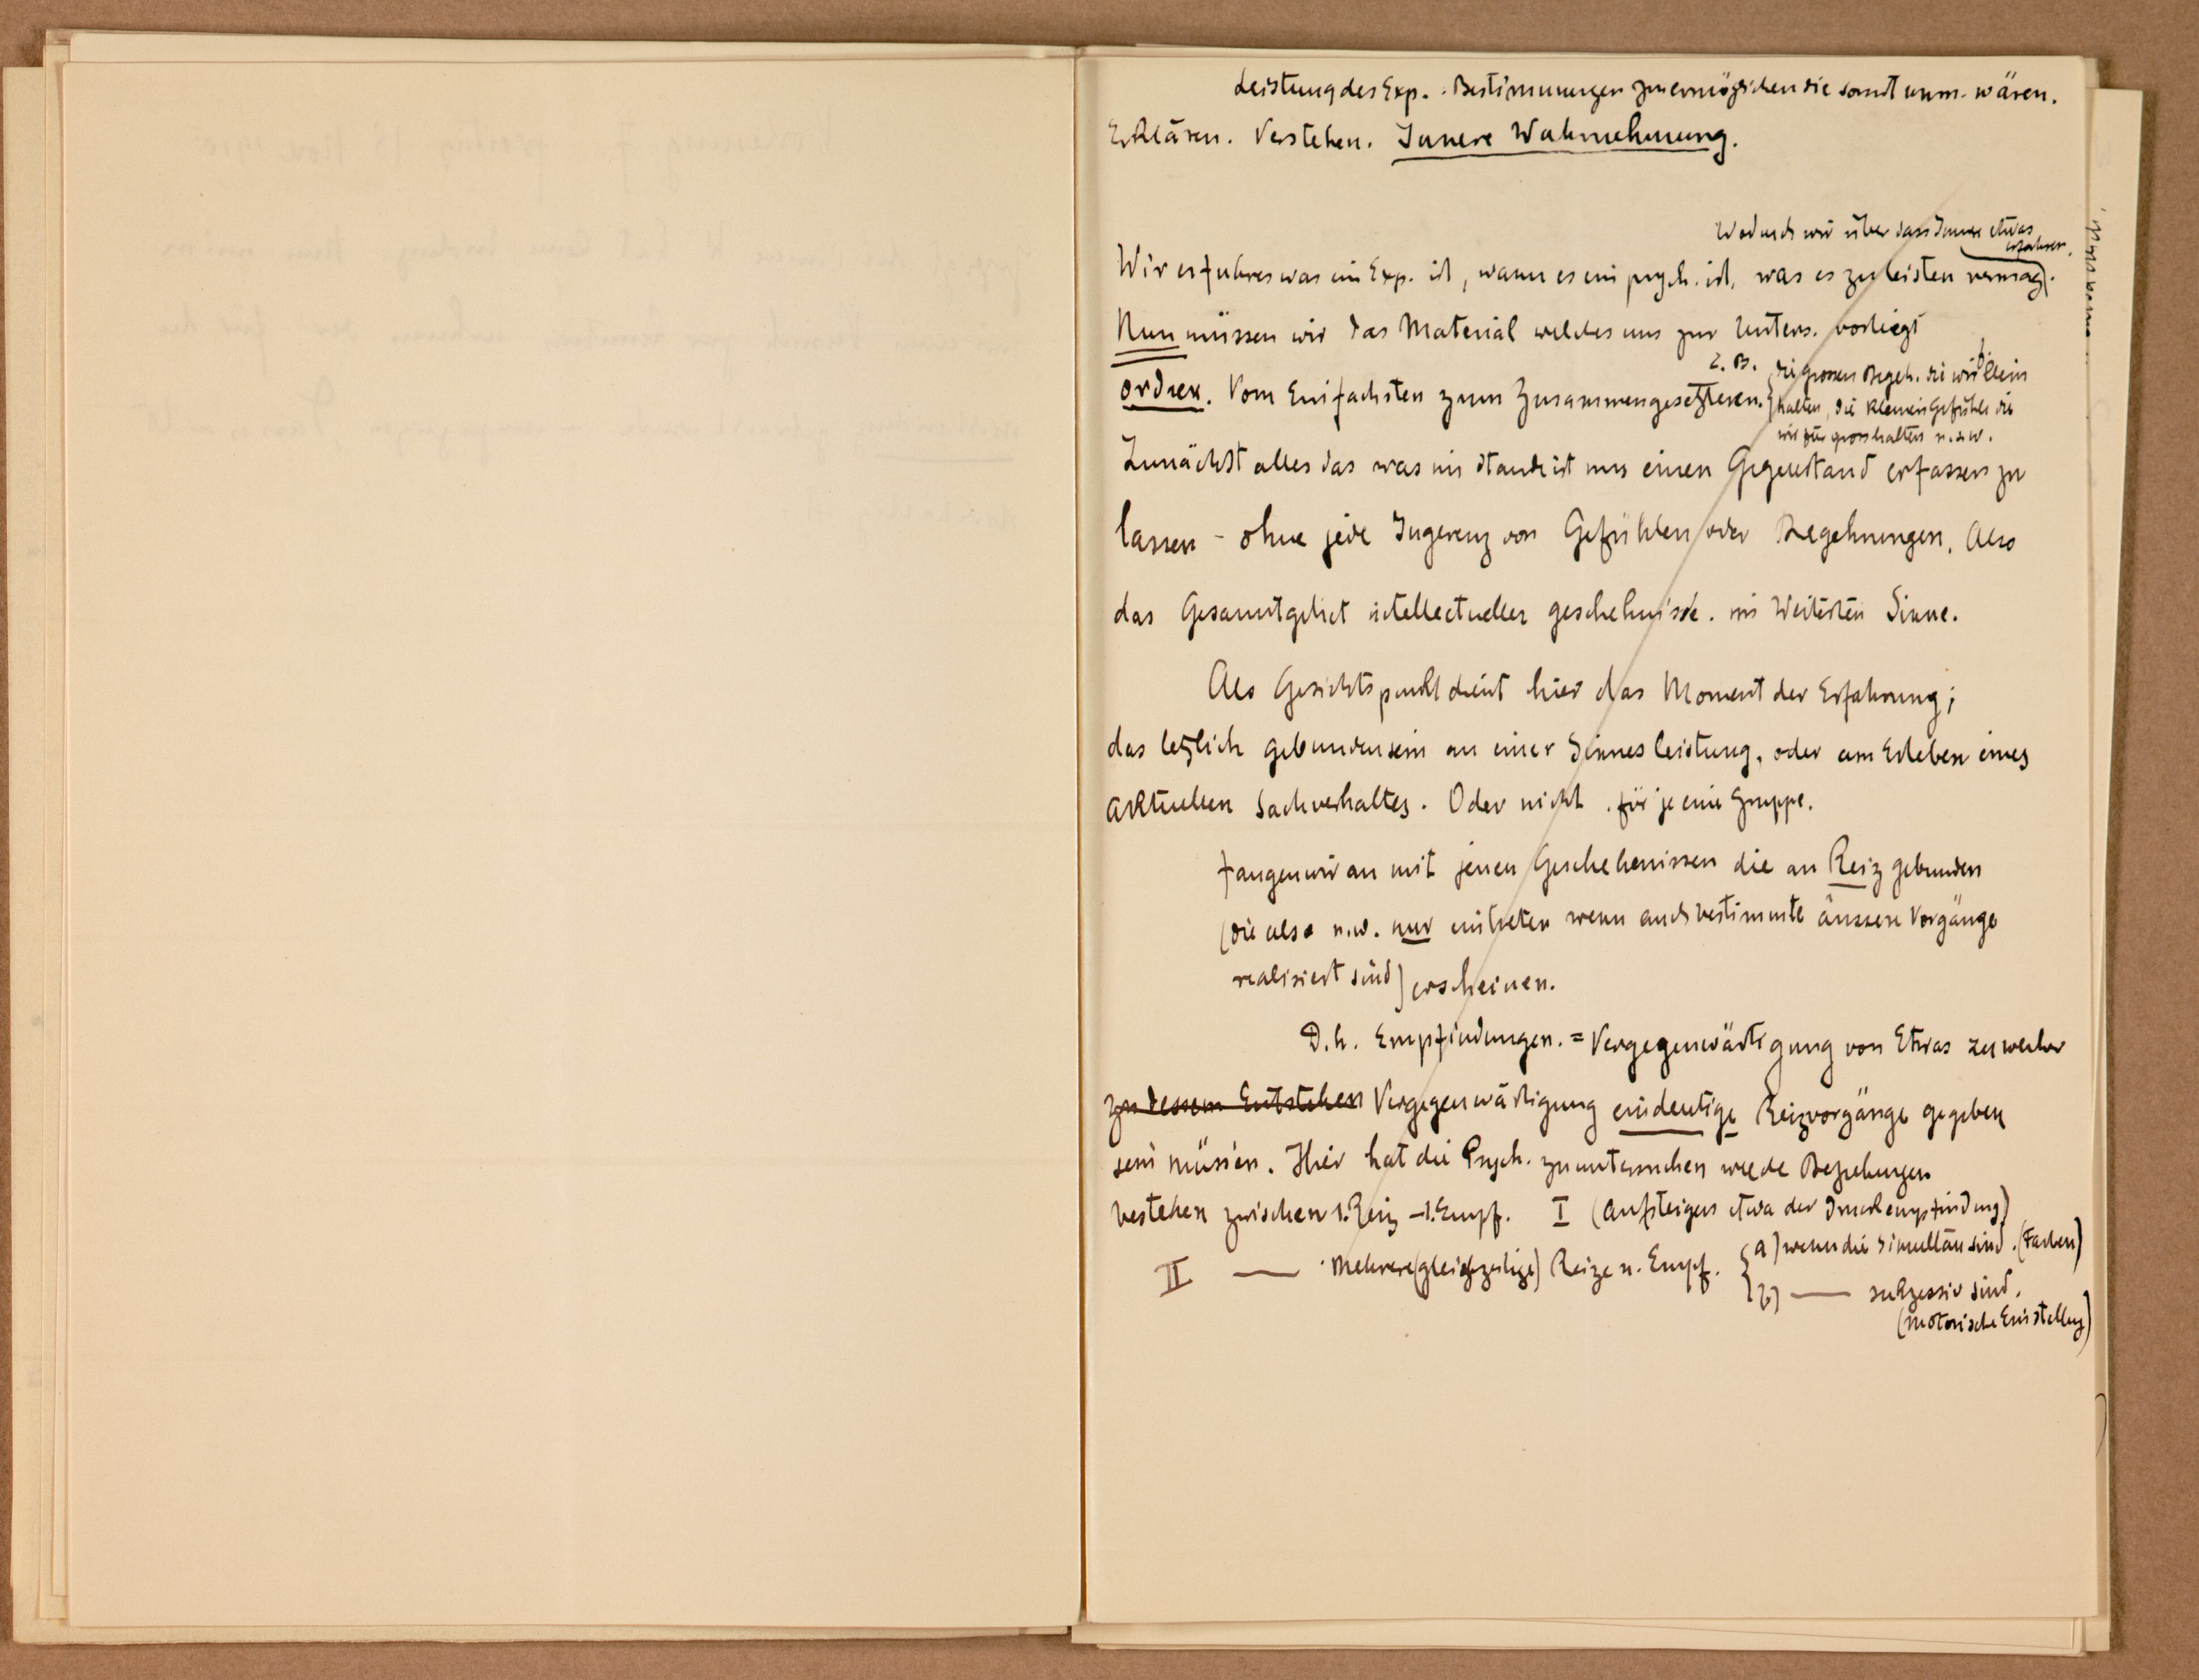 Leistung des Exp. : Bestimmungen zu ermöglichen die sonst unm. wären.
Erklären. Verstehen. Innere Wahrnehmung.
Wodurch wir über dass Innere etwas
erfahren.
Wir erfuhren was ein Exp. ist, wann es ein psych. ist, was es zu leisten vermag.
Nun müssen wir das Material welches uns zur Unters. vorliegt
ordnen. Vom Einfachsten zum Zusammengesetzteren.
z. B. die grossen Begeh. die wir klein
halten, die kleinen Gefühle die
wir für gross halten u.s.w.
Zunächst alles das was im stande ist uns einen Gegenstand erfassen zu
lassen - ohne jede Ingerenz von Gefühlen oder Begehrungen. Also
das Gesamtgebiet intellectueller geschehnisse. im Weitesten Sinne.
Als Gesichtspunkt dient hier das Moment der Erfahrung;
das letzlich gebundensein an einer Sinnesleistung, oder am Erleben eines
aktuellen Sachverhaltes. Oder nicht. für je eine Gruppe.
Fangen wir an mit jenen Geschehenissen die an Reiz gebunden
(die also n.w. nur eintreten wenn auch bestimmte äussere Vorgänge
realisiert sind) erscheinen.
D.h. Empfindungen. = Vergegenwärtigung von Etwas zu welcher
zu dessem Entstehen Vergegenwärtigung eindeutige Reizvorgänge gegeben
sein müssen. Hier hat die Psych. zu untersuchen welche Beziehungen
bestehen zwischen 1. Reiz – 1. Empf. I (Aufsteigen etwa der Druckempfindung)
II — Mehrere (gleichzeitige) Reize u. Empf. { a) wenn die Simultan sind. (Farben)
b) — sukzessiv sind.
(motorische Einstellung)